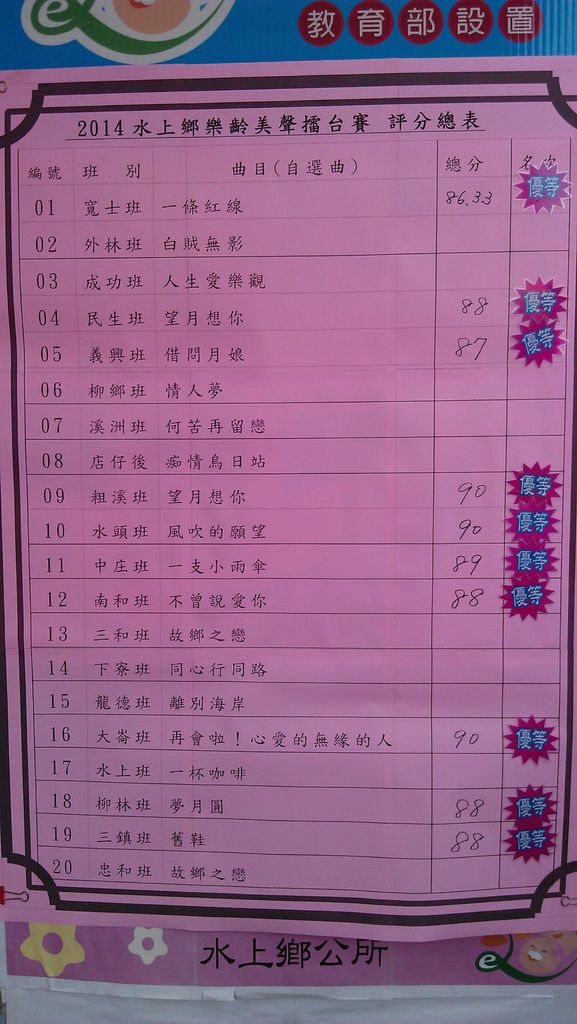 教育部設置
2014水上鄉樂齡美聲擂台賽 評分總表
編號 班 別 曲目(自選曲) 總分 名次
01 寬士班 一條紅線 86.33 優等
02 外林班 白賊無影
03 成功班 人生愛樂觀
04 民生班 望月想你 88 優等
05 義興班 借問月娘 87 優等
06 柳鄉班 情人夢
07 溪洲班 何苦再留戀
08 店仔後 痴情烏日站
09 粗溪班 望月想你 90 優等
10 水頭班 風吹的願望 90 優等
11 中庄班 一支小雨傘 89 優等
12 南和班 不曾說愛你 88 優等
13 三和班 故鄉之戀
14 下寮班 同心行同路
15 龍德班 離別海岸
16 大崙班 再會啦！心愛的無緣的人 90 優等
17 水上班 一杯咖啡
18 柳林班 夢月圓 88 優等
19 三鎮班 舊鞋 88 優等
20 忠和班 故鄉之戀
水上鄉公所